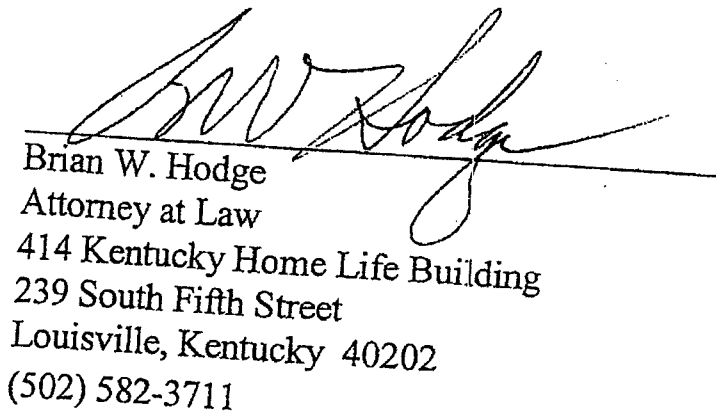 BW Hodge
Brian W. Hodge
Attorney at Law
414 Kentucky Home Life Building
239 South Fifth Street
Louisville, Kentucky 40202
(502) 582-3711